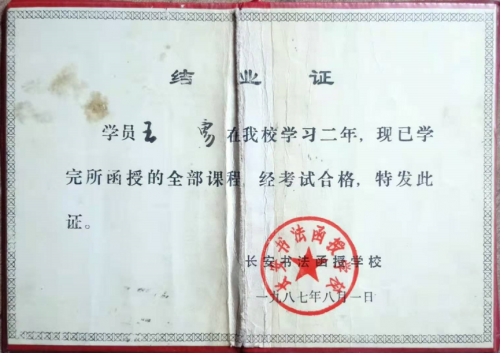 结业证
学员王勇在我校学习二年，现已学
完所函授的全部课程，经考试合格，特发此
证。
长安书法函授学校
长安书法函授学校
一九八七年八月一日